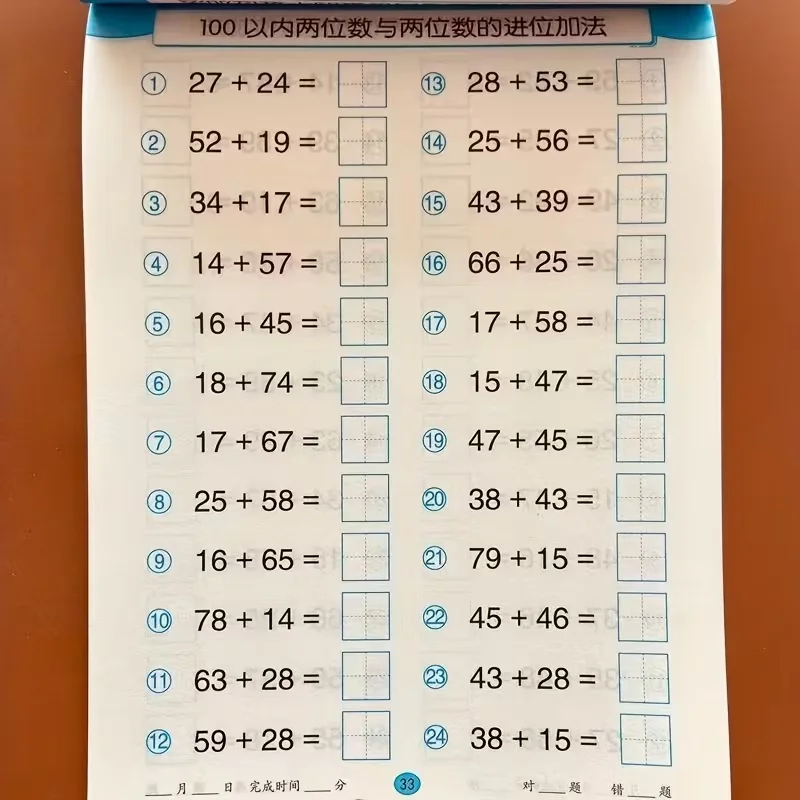 100 以内两位数与两位数的进位加法
① 27 + 24 =
② 52 + 19 =
③ 34 + 17 =
④ 14 + 57 =
⑤ 16 + 45 =
⑥ 18 + 74 =
⑦ 17 + 67 =
⑧ 25 + 58 =
⑨ 16 + 65 =
⑩ 78 + 14 =
⑪ 63 + 28 =
⑫ 59 + 28 =
⑬ 28 + 53 =
⑭ 25 + 56 =
⑮ 43 + 39 =
⑯ 66 + 25 =
⑰ 17 + 58 =
⑱ 15 + 47 =
⑲ 47 + 45 =
⑳ 38 + 43 =
㉑ 79 + 15 =
㉒ 45 + 46 =
㉓ 43 + 28 =
㉔ 38 + 15 =
___月___日 完成时间___分 33 对___题 错___题